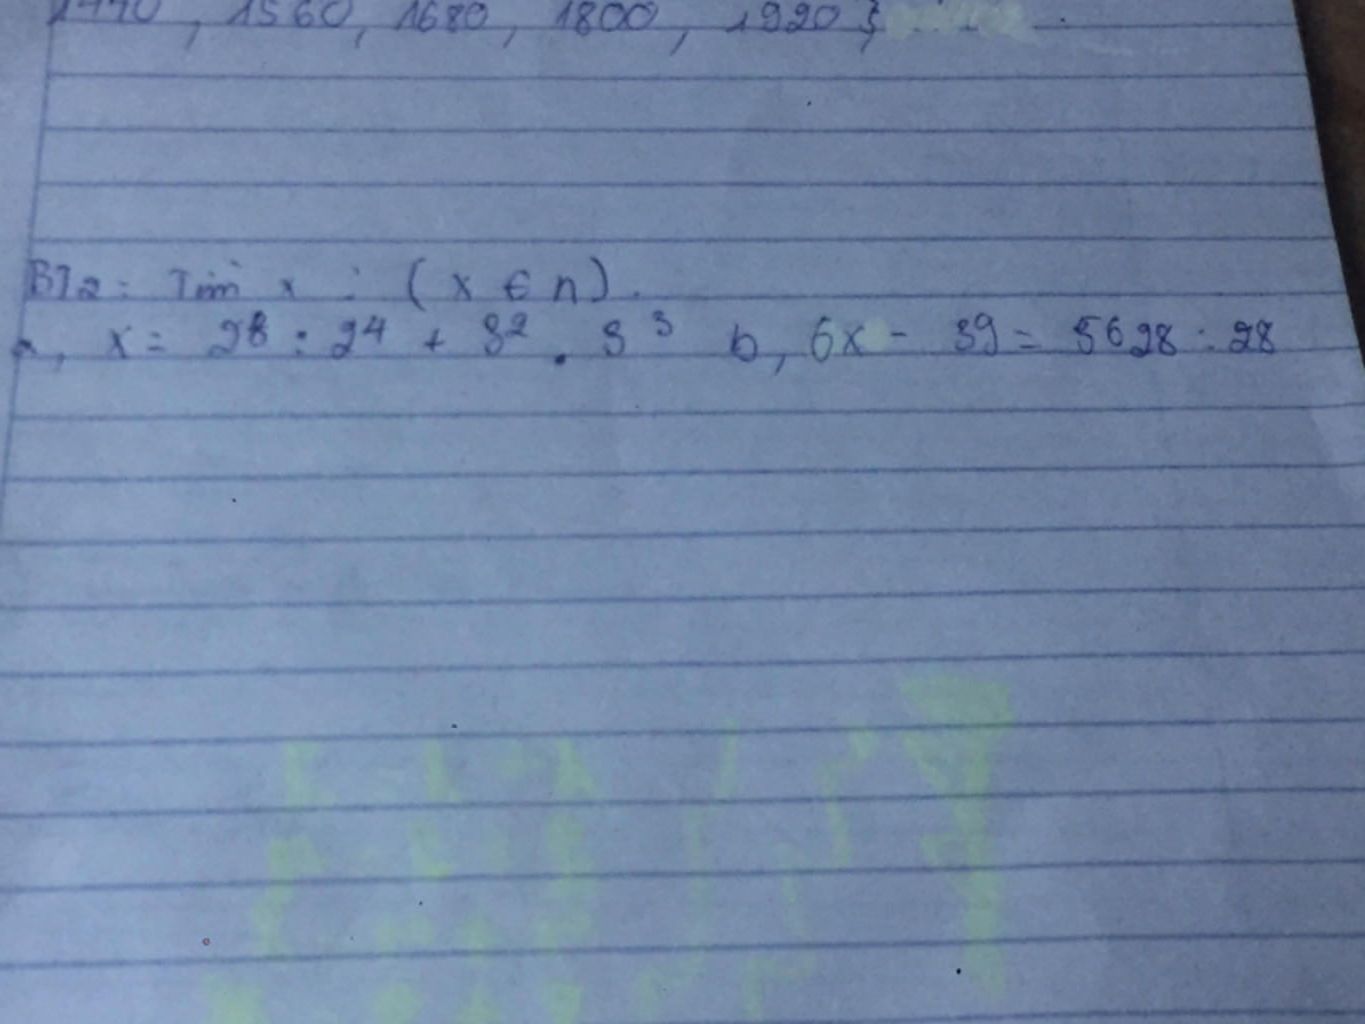 1440, 1560, 1680, 1800, 1920}
BT2: Tìm x : (x ∈ n).
a, x = 2⁸ : 2⁴ + 3² . 3³ b, 6x - 39 = 5628 : 28